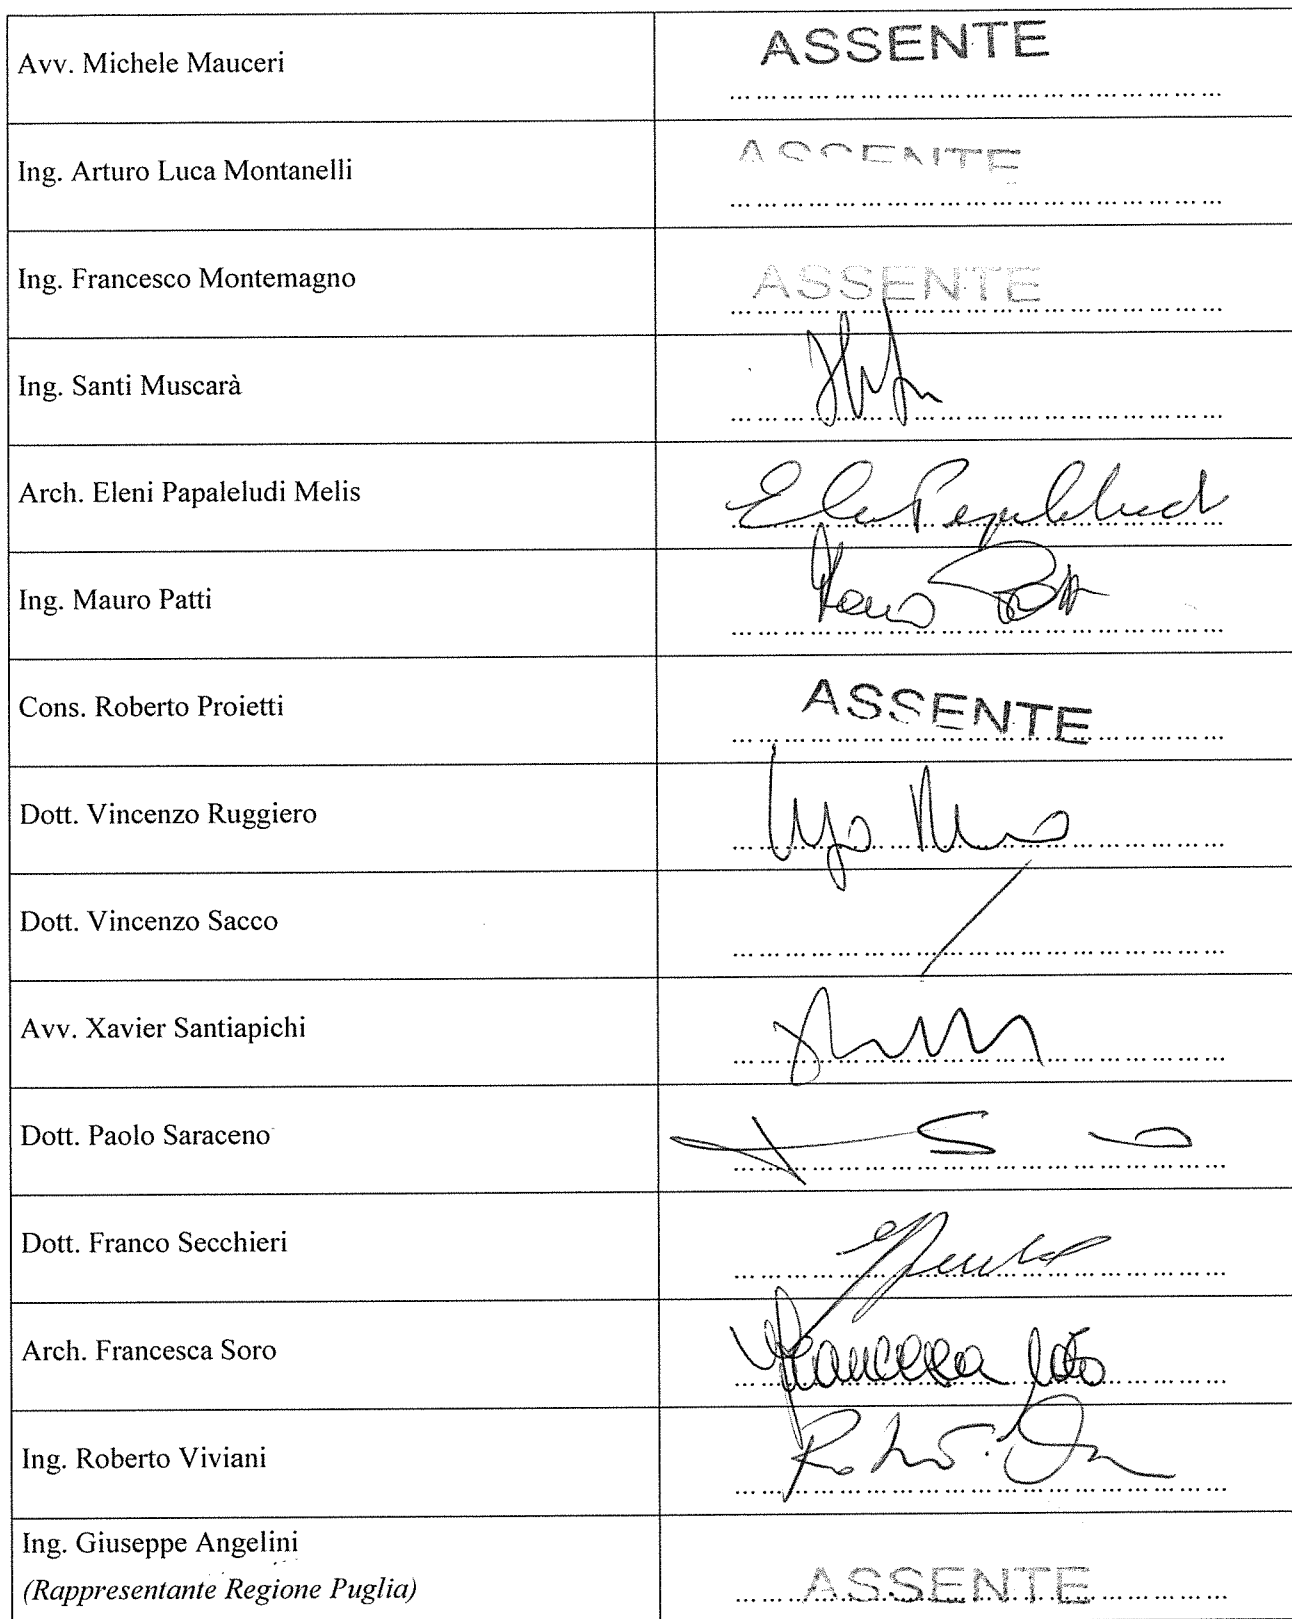 Avv. Michele Mauceri
ASSENTE
Ing. Arturo Luca Montanelli
ASSENTE
Ing. Francesco Montemagno
ASSENTE
Ing. Santi Muscarà
Arch. Eleni Papaleludi Melis
Ing. Mauro Patti
Cons. Roberto Proietti
ASSENTE
Dott. Vincenzo Ruggiero
Dott. Vincenzo Sacco
Avv. Xavier Santiapichi
Dott. Paolo Saraceno
Dott. Franco Secchieri
Arch. Francesca Soro
Francesca Soro
Ing. Roberto Viviani
Ing. Giuseppe Angelini
(Rappresentante Regione Puglia)
ASSENTE